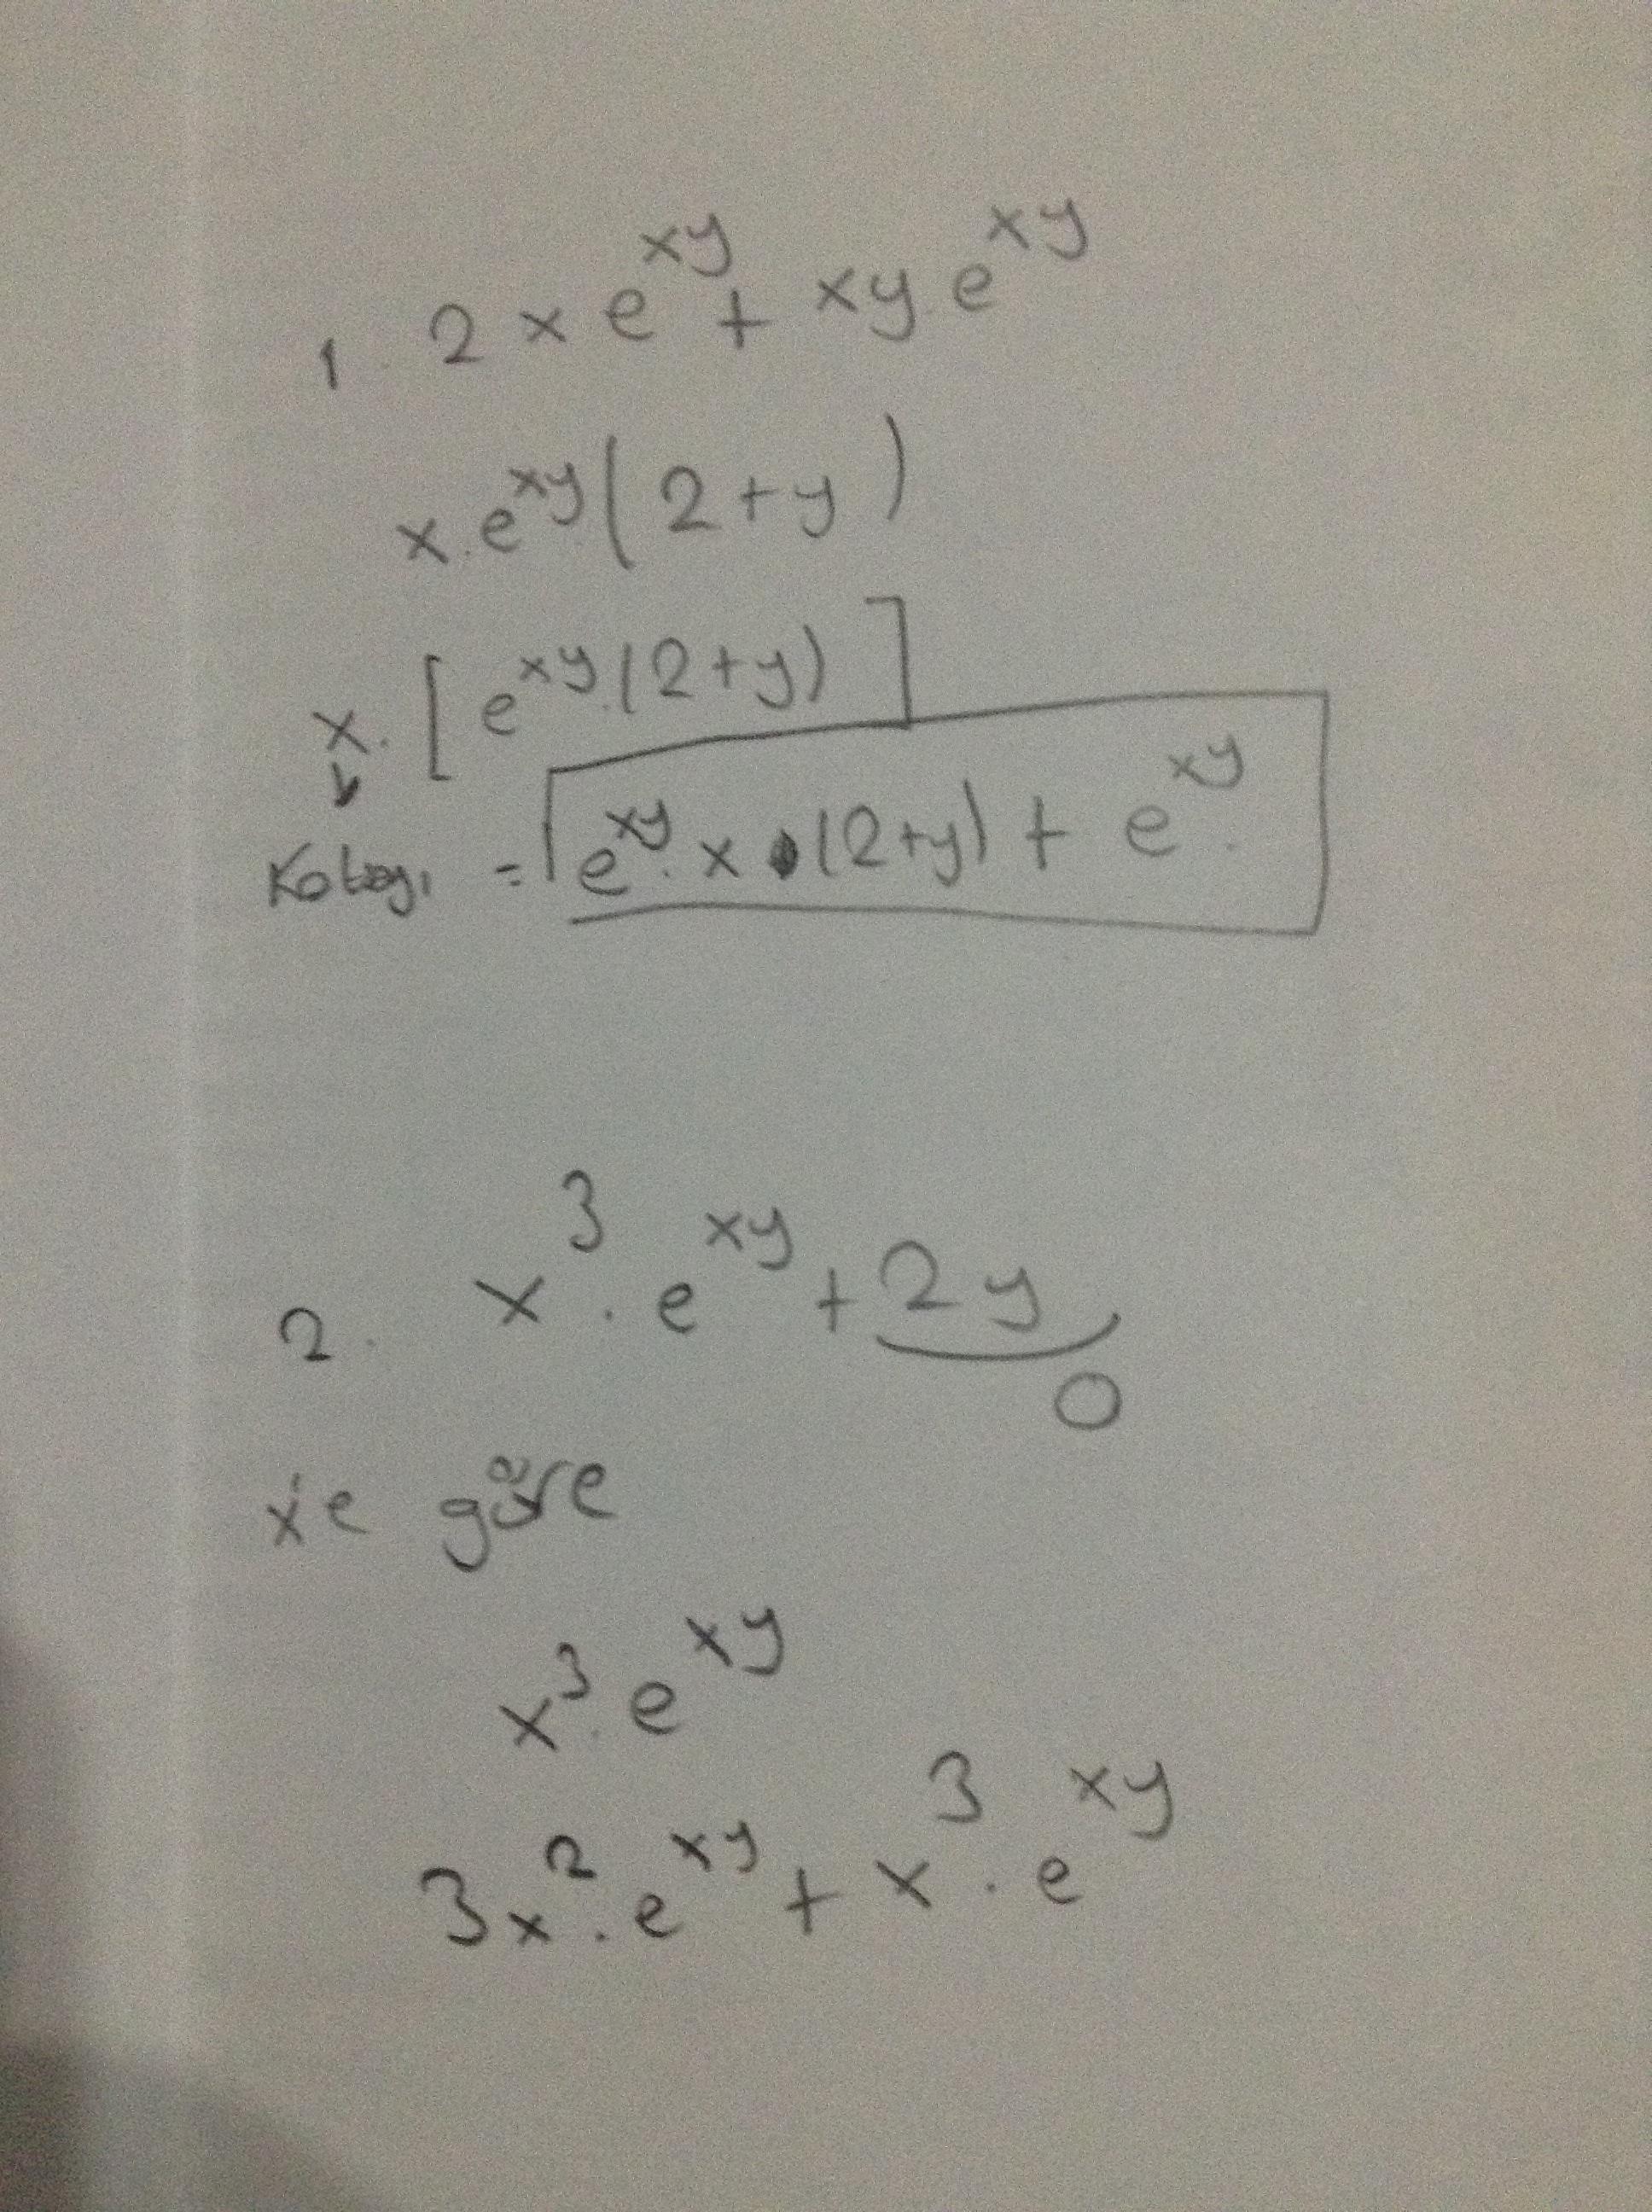 1. 2xe^xy + xy.e^xy
x.e^xy(2+y)
x.[e^xy.(2+y)]
↓
= e^xy.x.(2+y) + e^xy.
2. x^3.e^xy + 2y
0
x'e göre
x^3.e^xy
3x^2.e^xy + x^3.e^xy